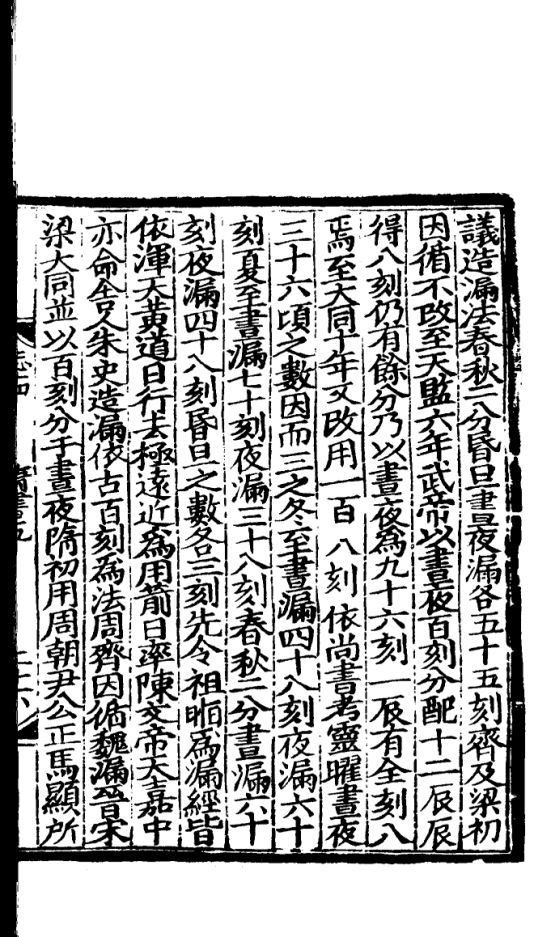 議造漏法春秋二分昬旦晝夜漏各五十五刻齊及梁初
因循不改至天監六年武帝以晝夜百刻分配十二辰辰
得八刻仍有餘分乃以晝夜爲九十六刻一辰有全刻八
焉至大同十年又改用一百八刻依尚書考靈曜晝夜
三十六頃之數因而三之冬至晝漏四十八刻夜漏六十
刻夏至晝漏七十刻夜漏三十八刻春秋二分晝漏六十
刻夜漏四十八刻昬旦之數各三刻先令祖暅爲漏經皆
依渾天黃道日行去極遠近爲用箭日率陳文帝天嘉中
亦命舍人朱史造漏依古百刻爲法周齊因循魏漏晉宋
梁大同並以百刻分于晝夜隋初用周朝尹公正馬顯所
志十四